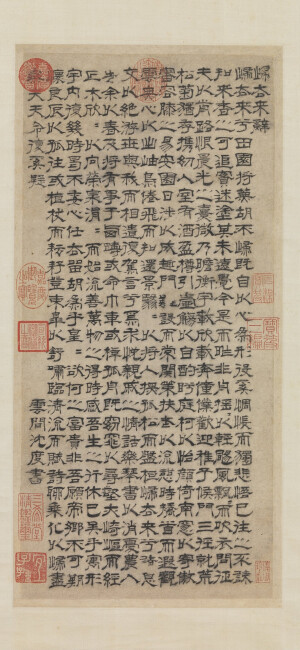 歸去來辭
歸去來兮田園將蕪胡不歸既自以心為形役奚惆悵而獨悲悟已往之不諫
知來者之可追實迷塗其未遠覺今是而昨非舟搖搖以輕颺風飄飄而吹衣問征
夫以前路恨晨光之熹微乃瞻衡宇載欣載奔僮僕歡迎稚子候門三徑就荒
松菊猶存攜幼入室有酒盈樽引壺觴以自酌眄庭柯以怡顏倚南窗以寄傲
審容膝之易安園日涉以成趣門雖設而常關策扶老以流憩時矯首而遐觀
雲無心以出岫鳥倦飛而知還景翳翳以將入撫孤松而盤桓歸去來兮請息
交以絕游世與我而相遺復駕言兮焉求悅親戚之情話樂琴書以消憂農人
告余以春及將有事于西疇或命巾車或棹孤舟既窈窕以尋壑亦崎嶇而經
丘木欣欣以向榮泉涓涓而始流善萬物之得時感吾生之行休已矣乎寓形
宇內復幾時曷不委心任去留胡為乎遑遑欲何之富貴非吾願帝鄉不可期
懷良辰以孤往或植杖而耘耔登東皋以舒嘯臨清流而賦詩聊乘化以歸盡
樂夫天命復奚疑
雲間沈度書